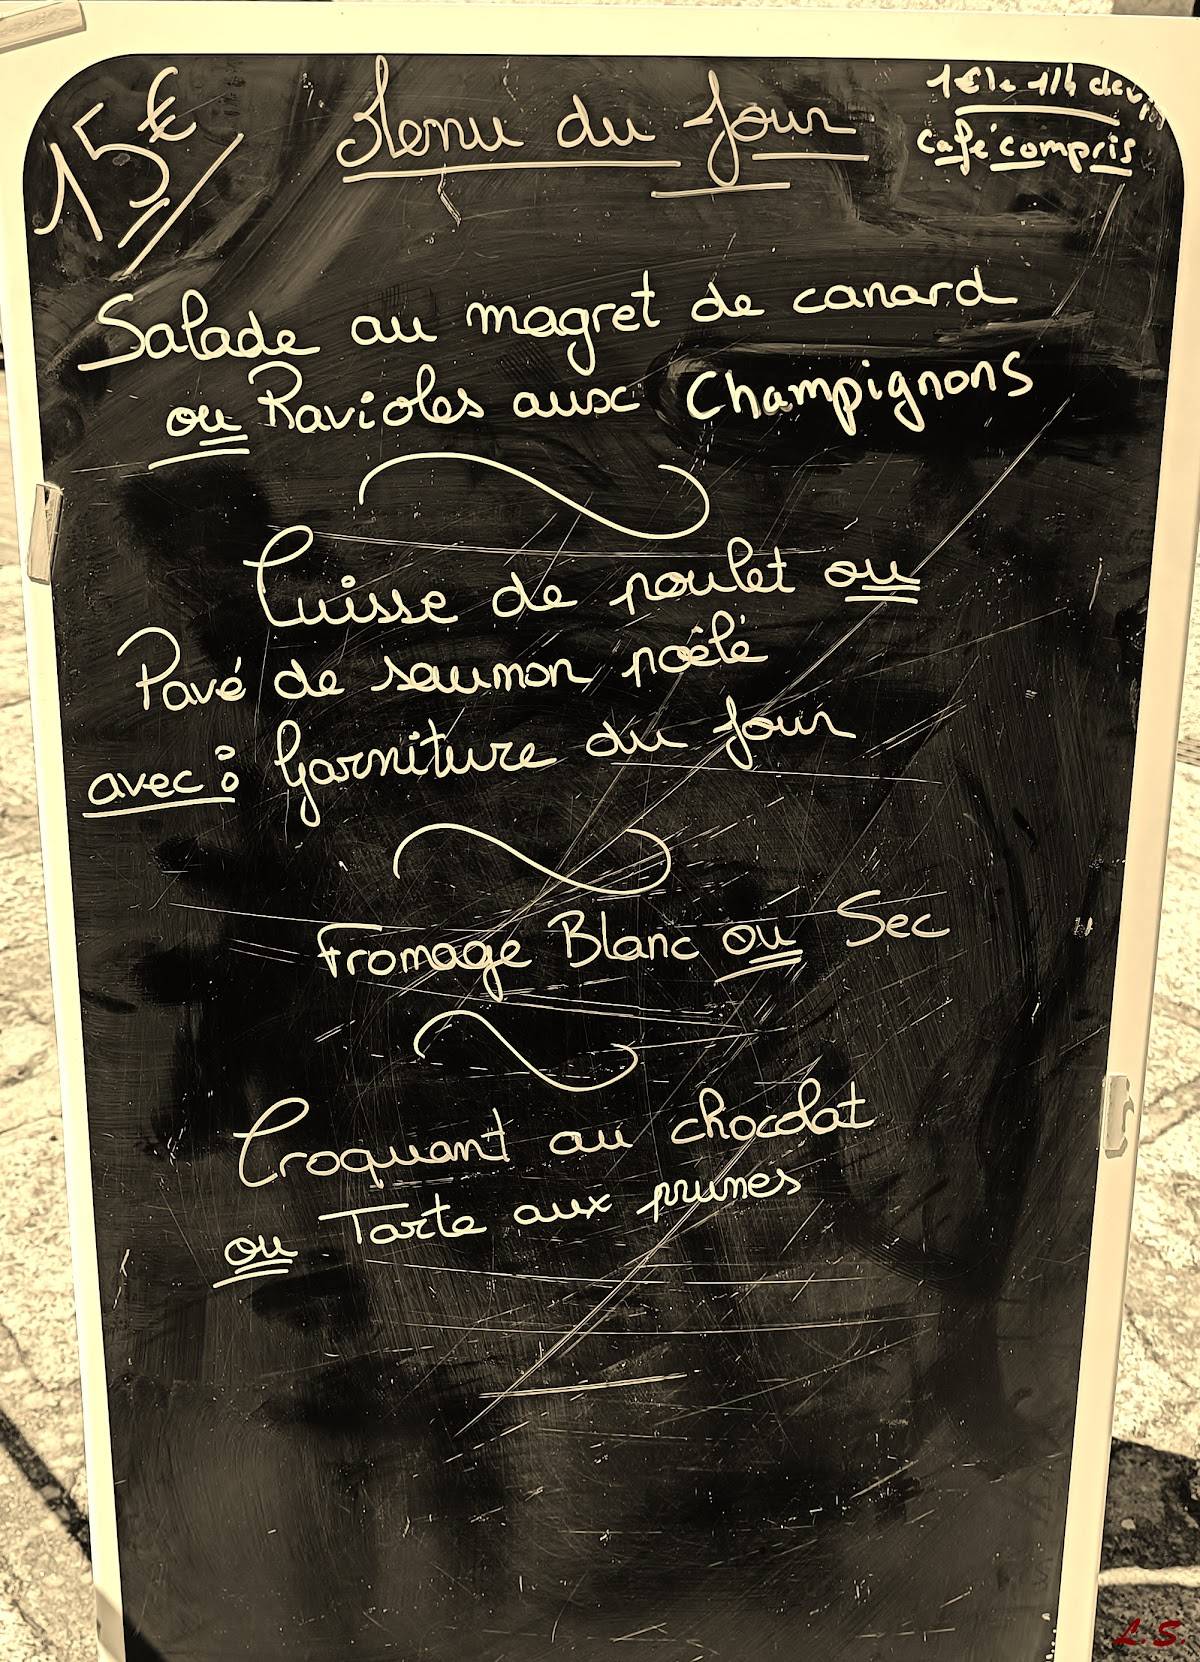 15€
Menu du Jour
1€ le 1/4 de vin
Café compris
Salade au magret de canard
ou Ravioles aux Champignons
Cuisse de poulet ou
Pavé de saumon poêlé
avec : Garniture du Jour
Fromage Blanc ou Sec
Croquant au chocolat
ou Tarte aux prunes
L.S.